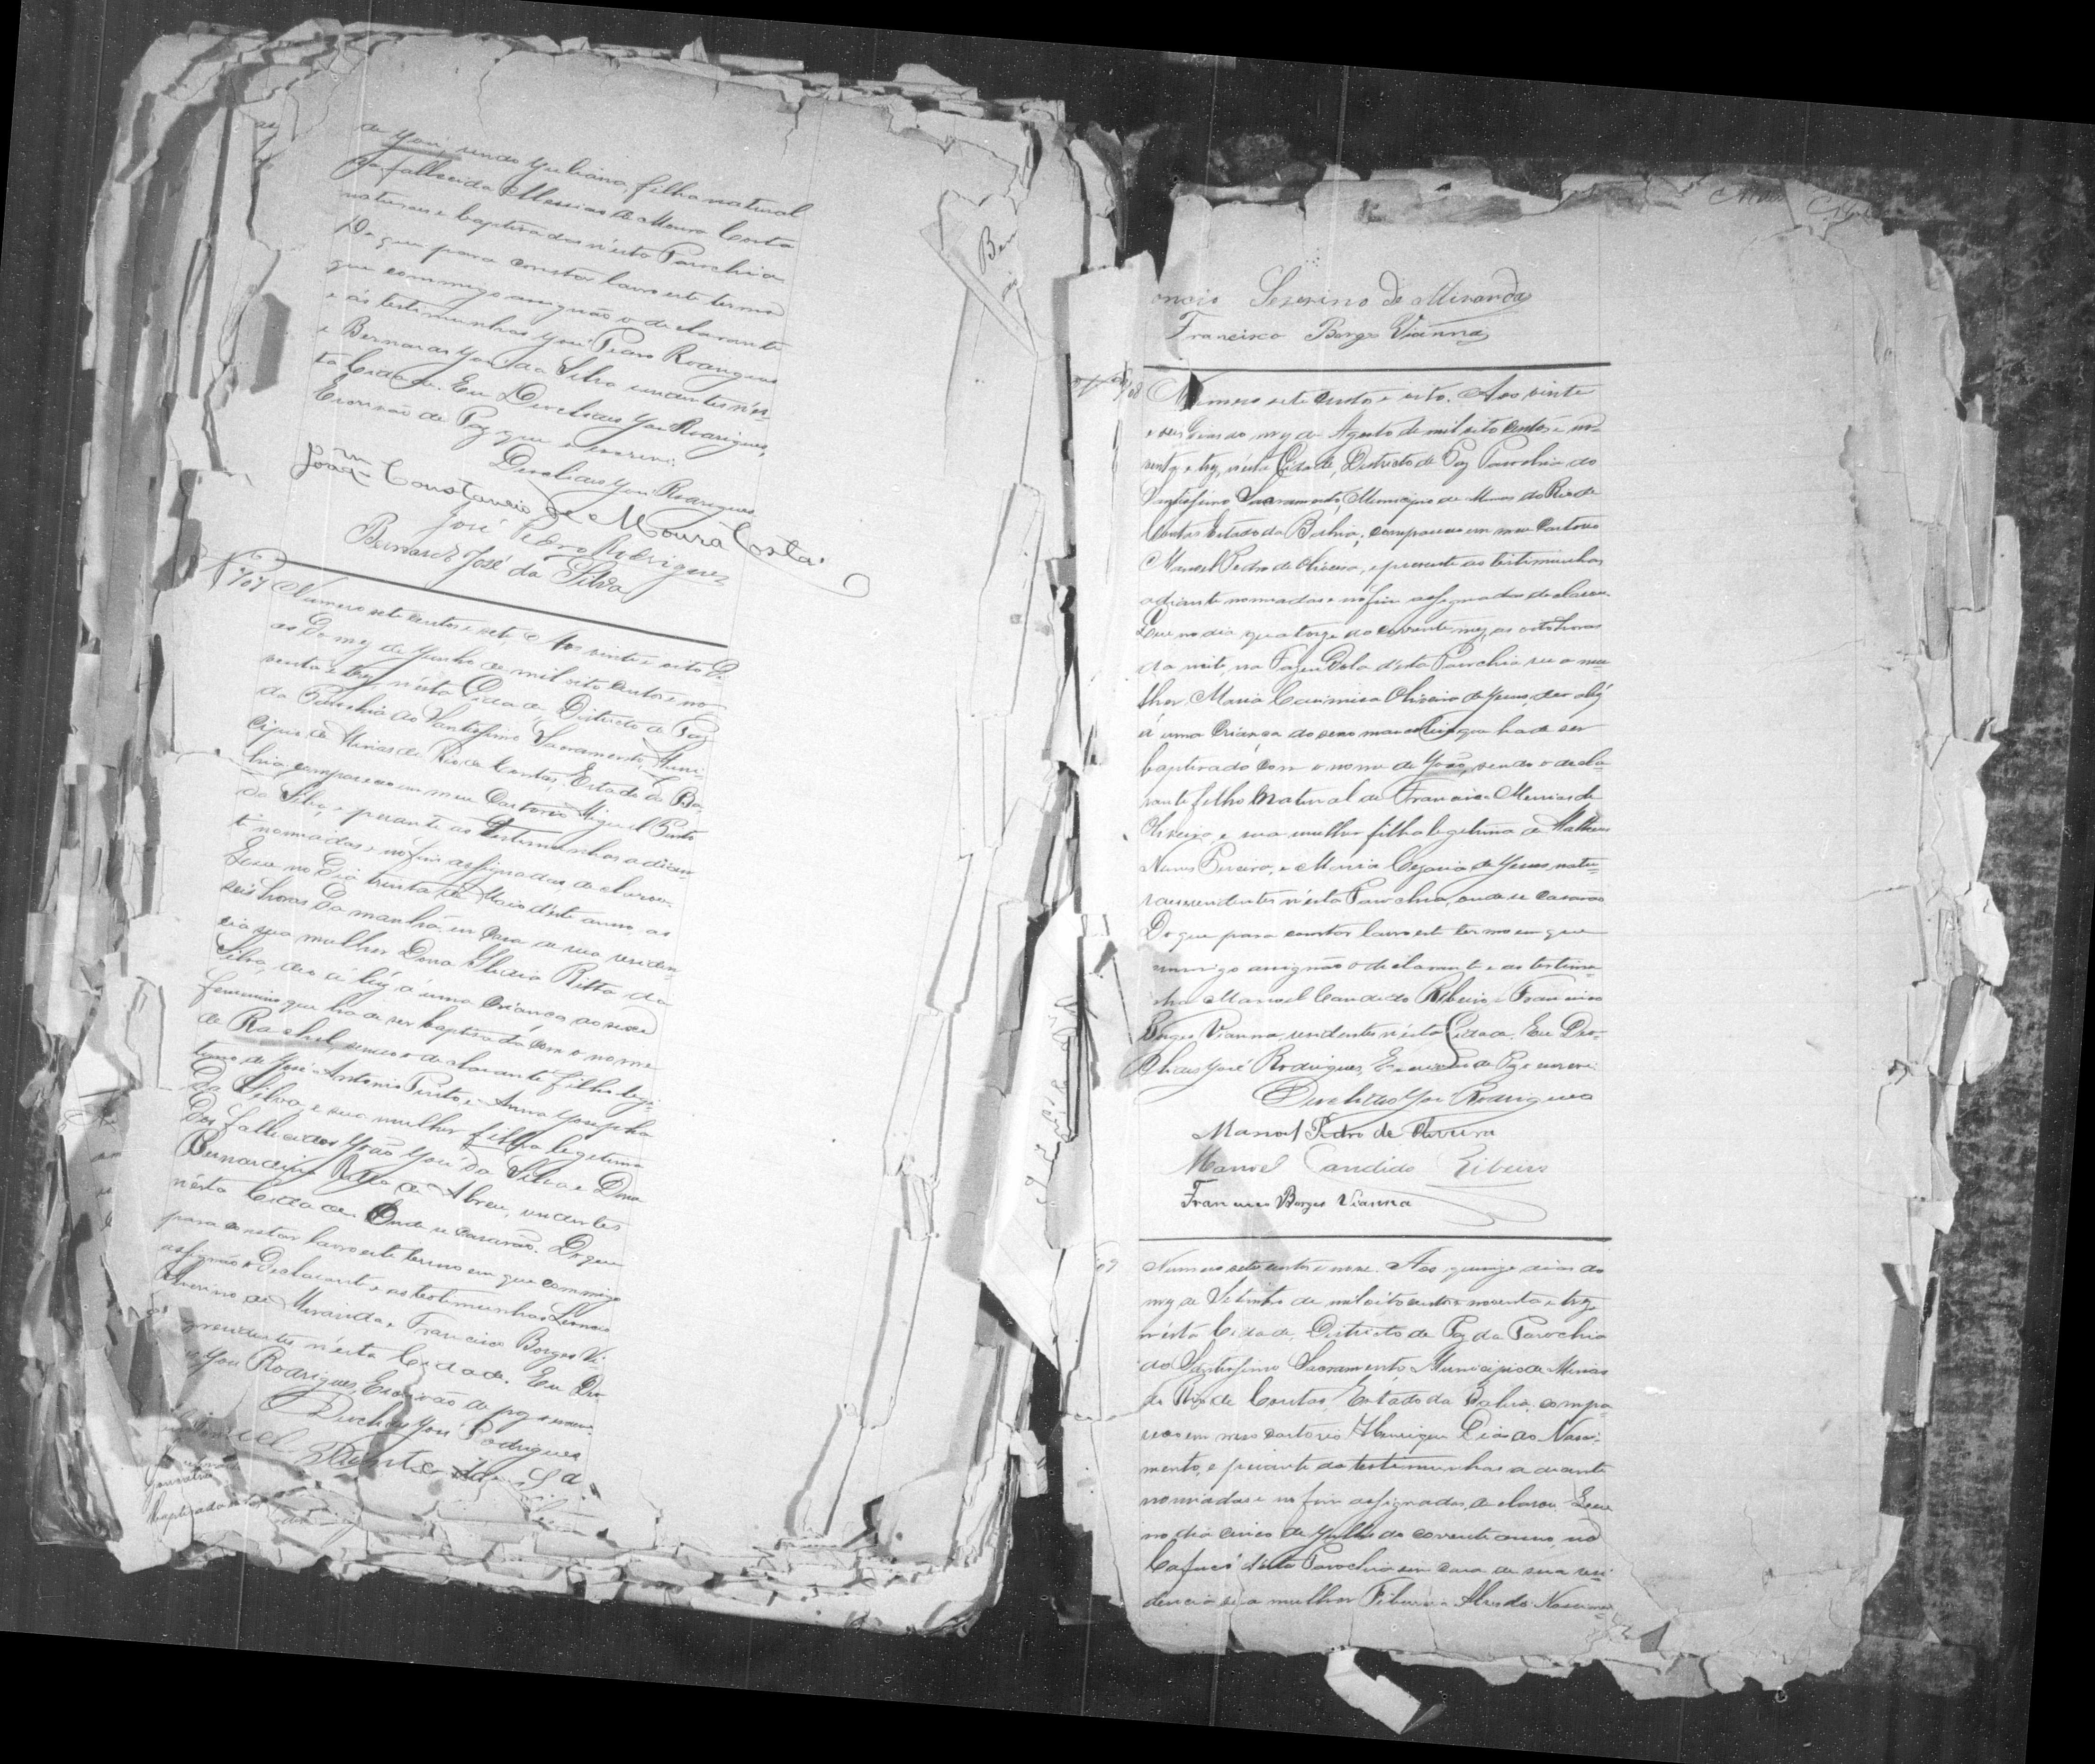 de José, sendo Juliana, filha natural
da fallecida Messias de Moura Costa
naturaes e baptisados n'esta Parochia
Do que para constar lavro este termo
que commigo assignão o declarante
e as testimunhas José Pedro Rodrigues
e Bernardo José da Silva residentes n'es-
ta Cidade. Eu Deoclides José Rodrigues,
Escrivão de Paz que escrevi:
José Rodrigues
Joaqm Constancio de Moura Costa
José Pedro Rodrigues
Bernardo José da Silva
707 Numero sete centos e sete. Aos vinte e oito di-
as do mez de Junho de mil oito centos e no-
venta e trez, n'esta Cidade, Districto de Paz
da Parochia do Santissimo Sacramento, Muni-
cipio de Minas do Rio de Contas, Estado da Ba-
hia compareceo em meu Cartorio Miguel Pinto
da Silva, e perante as testimunhas adian-
te nomiadas e no fim assignadas, declarou:
Que no dia trinta de Maio d'este anno, as
seis horas da manhã, em casa de sua residen-
cia sua mulher Dona Ritta da
Silva, deo á luz á uma criança do sexo
femenino, que ha de ser baptisada com o nome
de Rachel, sendo o declarante filho legi-
timo de José Antonio Pinto e Anna Josepha
da Silva, e sua mulher filha legitima
dos fallecidos João José da Silva e Dona
Bernardina Ritta de Abreu, residentes
n'esta Cidade. Onde se casarão. Do que
para constar lavro este termo em que commigo
assignão o declarante e as testimunhas Leoncio
Severino de Miranda e Francisco Borges Vi-
residentes n'esta Cidade. Eu Deo-
José Rodrigues, Escrivão de paz escrevi.
José Rodrigues
baptisado
Ber
oncio Severino de Miranda
Francisco Borges Vianna
708 Numero sete centos e oito. Aos vinte
e seis dias do mez de Agosto de mil oito centos e no-
venta e trez, n'esta Cidade, Districto de Paz Parochia do
Santissimo Sacramento, Municipio de Minas do Rio de
Contas Estado da Bahia, compareceo em meu Cartorio
Manoel Pedro de Oliveira, e perante as testimunhas
adiante nomeadas e no fim assignadas declarou.
Que no dia quatorze do corrente mez, as oito horas
da noite, na Fazenda d'esta Parochia sua mu-
lher Maria Casimira Oliveira de Jesus, deo á luz
á uma criança do sexo masculino que ha de ser
baptisado com o nome de João, sendo o decla-
rante filho natural de Francisca Messias de
Oliveira, e sua mulher filha legitima de Matheus
Nunes Pereira, e Maria Cezaria de Jesus, natu-
raes residentes n'esta Parochia, onde se casarão
Do que para constar lavro este termo em que
commigo assignão o declarante e as testimu-
nhas Manoel Candido Ribeiro e Francisco
Borges Vianna, residentes n'esta Cidade. Eu Deo-
clides José Rodrigues, Escrivão de Paz e escrevi.
José Rodrigues
Manoel Pedro de Oliveira
Manoel Candido Ribeiro
Francisco Borges Vianna
09 Numero sete centos e nove. Aos quinze dias do
mez de Setembro de mil oito centos e noventa e trez,
n'esta Cidade, Districto de Paz da Parochia
do Santissimo Sacramento Municipio de Minas
do Rio de Contas, Estado da Bahia, compa-
receo em meo cartorio Henrique Dias do Nasci-
mento, e perante as testimunhas adiante
nomiadas e no fim assignadas, declarou: Que
no dia cinco de Julho do corrente anno, no
d'esta Parochia em casa de sua resi-
dencia sua mulher Alves do Nascimen-